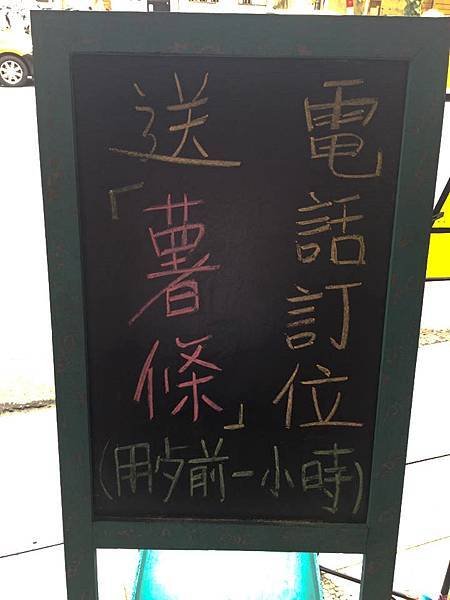 電話訂位
送「薯條」
(用歺前一小時)